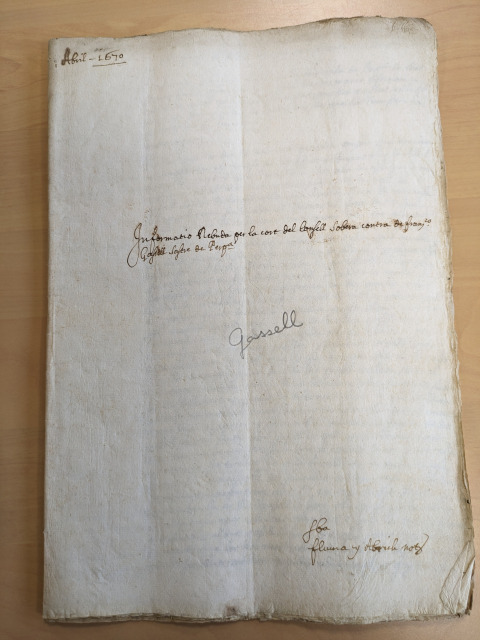 Abril - 1670
Informatio Rebuda per la cort del Consell Sobera contra de fran.co
Gassell Sastre de Perp.a
Gassell
fluvia y Abrich not.s